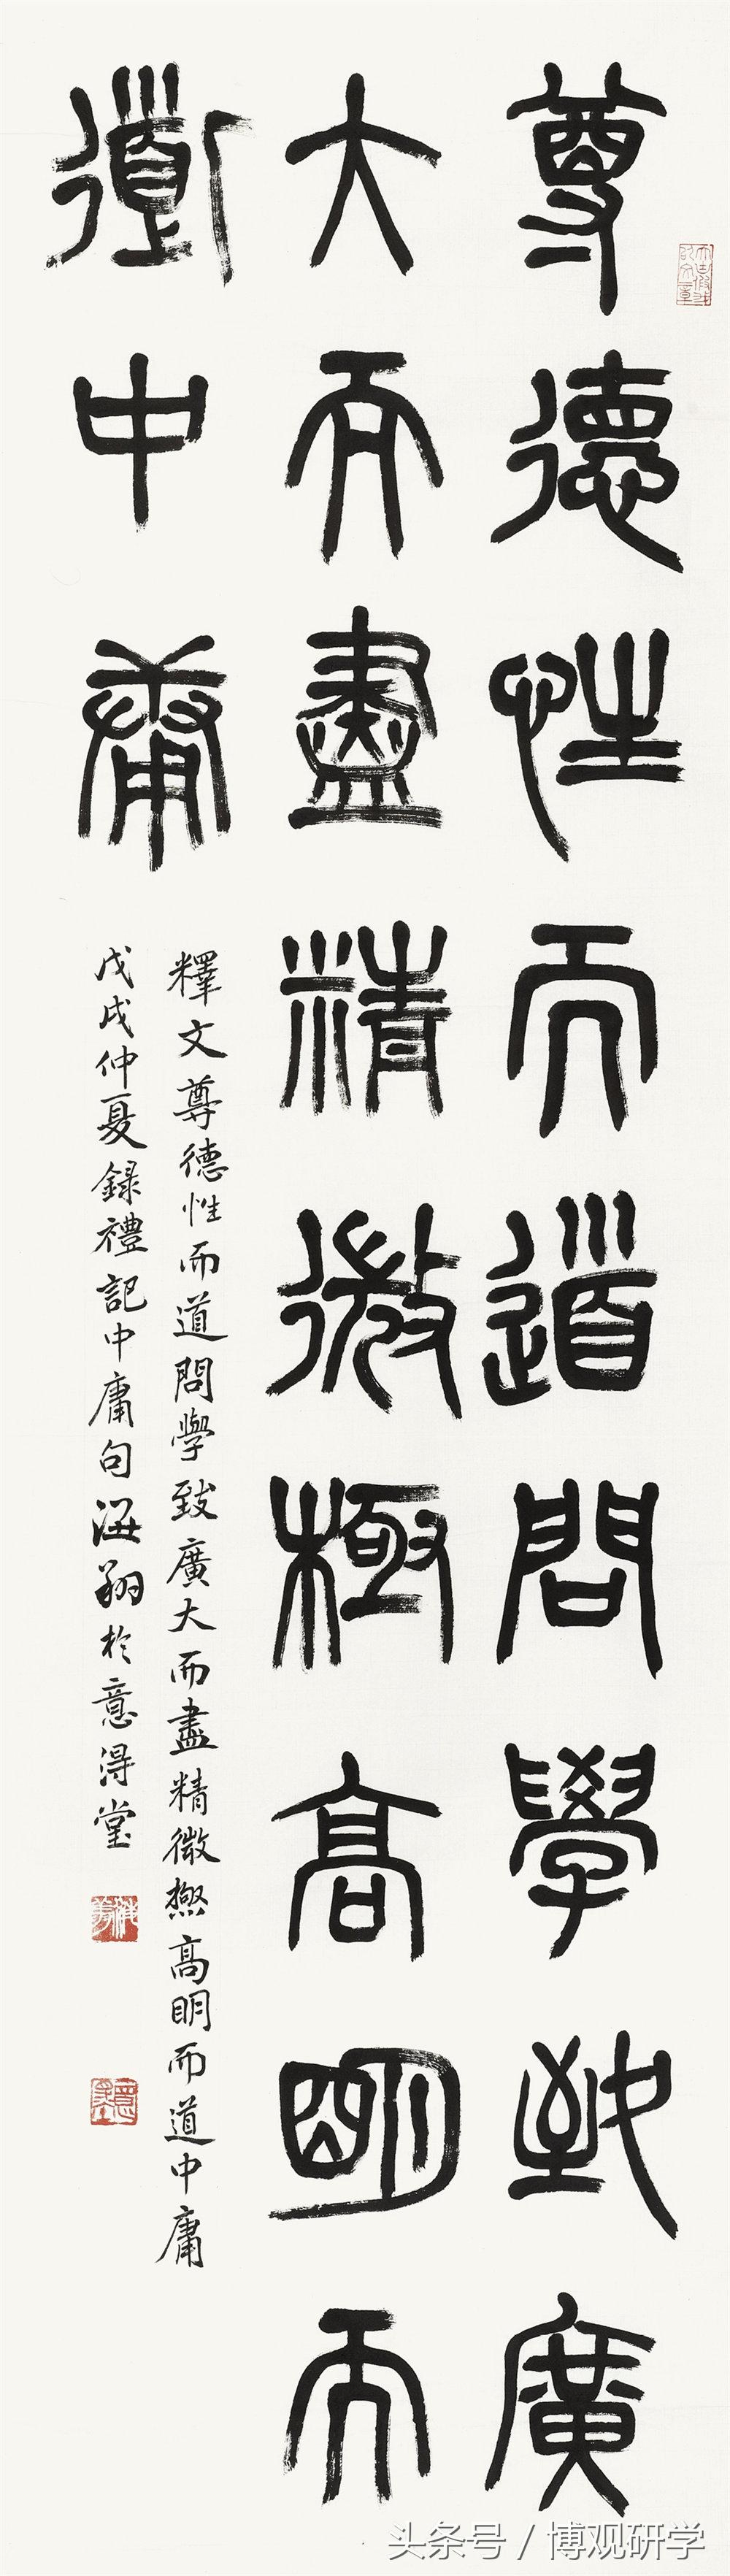 尊德性而道問學致廣
大而盡精微極高明而
道中庸
釋文尊德性而道問學致廣大而盡精微極高明而道中庸
戊戌仲夏錄禮記中庸句海翔於意得堂
头条号 / 博观研学